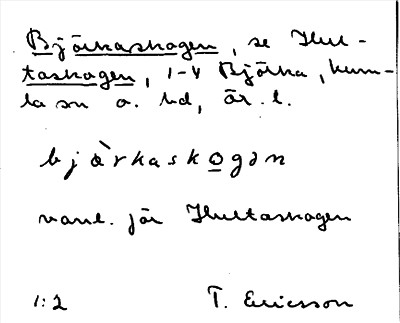 Björkaskogen, se Hul-
taskogen, 1-4 Björka, Kum-
la sn o. hd, Ör. l.
bjàrkaskogən
vanl. för Hultaskogen
1:2 T. Ericsson